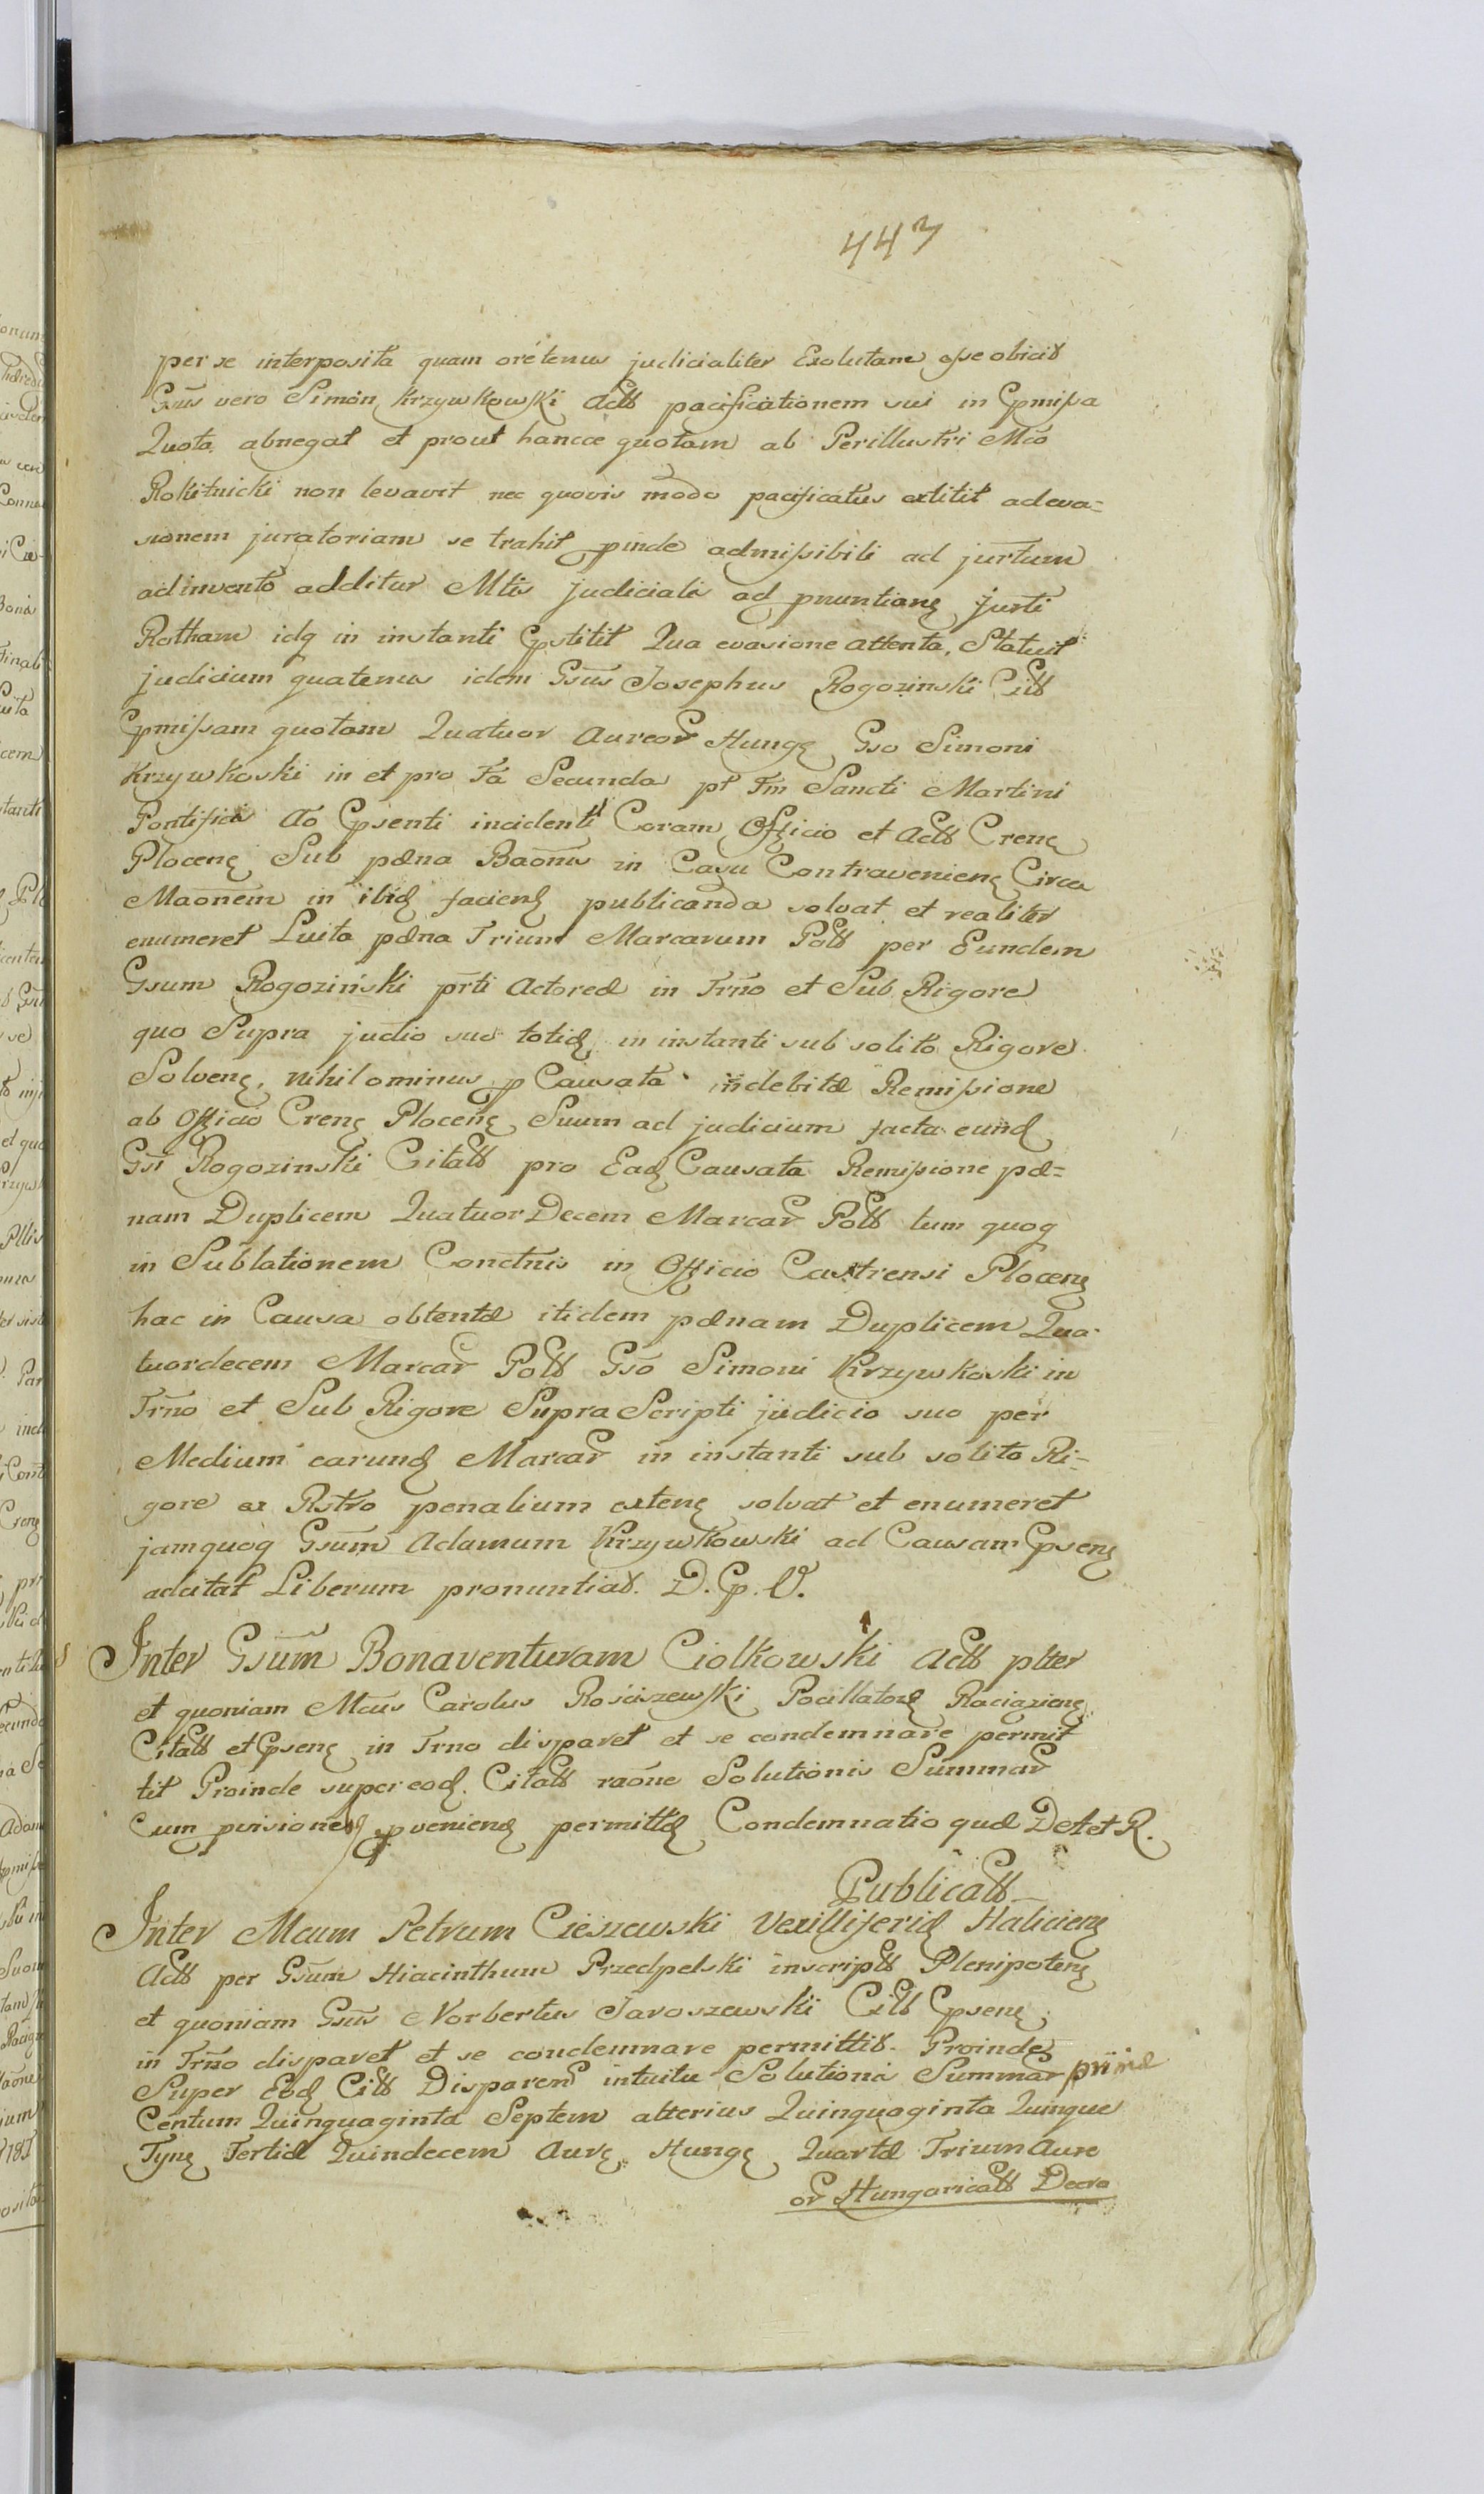 443
per se interposita quam orétenus judicialiter Exolutam esse obicit
Gsūs vero Simon Krzywkowski Actt pacificationem sui in Cpmissa
Quota abnegat et prout hancce quotam ab Perillustri Mco
Rokitnicki non levavit nec quovis modo pacificatus extitit ad eva=
sionem juratoriam se trahit pinde admissibili ad jurtum
adinvento additur Mtis judicialis ad pnuntiang Jurti
Rotham idq in instanti Cpstitit Qua evasione attenta, Statuit
judicium quatenus idem Gsūs Josephus Rogozinski Citt
Cpmissam quotam Quatuor Aureor Hung Gso Simoni
Krzywkoski in et pro Fa Secunda pt Fm Sancti Martini
Pontificis Ao Cpsenti incidenti Coram Officio et Actt Crens
Plocens Sub pæna Baonis in Casu Contraveniens Circa
Maonem in ibid faciend publicanda solvat et realiter
enumeret Luita pæna Trium Marcarum Poltt per Eundem
Gsum Rogoziński prti Actoreæ in Trno et Sub Rigore
quo Supra judio suo totid in instanti sub solito Rigore
Solvens, nihilominus p Causata indebitæ Remissione
ab Officio Crens Plocens Suum ad judicium facta eund
Gsi Rogozinski Citatt pro Ead Causata Remissione pæ=
nam Duplicem Quatuor Decem Marcar Poltt tum quoq
in Sublationem Conctnis in Officio Castrensi Plocens
hac in Causa obtentæ itidem pænam Duplicem Qua-
tuordecem Marcar Poltt Gso Simoni Krzywkoski in
Trno et Sub Rigore Supra Scripti judicio suo per
Medium earund Marcar in instanti sub solito Ri=
gore ex Rstro penalium extens solvat et enumeret
jamquoq Gsum Adamum Krzywkowski ad Causam Cpsens
adcitat Liberum pronuntiat. D. Cp. V.
Inter Gsūm Bonaventuram Ciolkowski Actt plter
et quoniam Mcus Carolus Rościszewski Pocillatore Raciaziens
Citatt et Cpsens in Trno disparet et se condemnare permit
tit Proinde super eod. Citatt raōne Solutionis Summar
Cum pvisione pveniend permittd Condemnatio quæ Det et R.
Publicatt
Inter Mcum Petrum Cieszewski Vexilliferid Haliciens
Actt per Gsum Hiacinthum Przedpelski inscriptt Plenipotens
et quoniam Gsūs Norbertus Jaroszewski Citt Cpsens
in Trno disparet et se condemnare permittit. Proinde
Super Eod Citt Disparen intuitu Solutionis Summar priinæ
Centum Quinquaginta Septem alterius Quinquaginta Quinque
Tyns Tertiæ Quindecem Aurs Hungs Quartæ Trium Aure
or Hungaricatt Decro